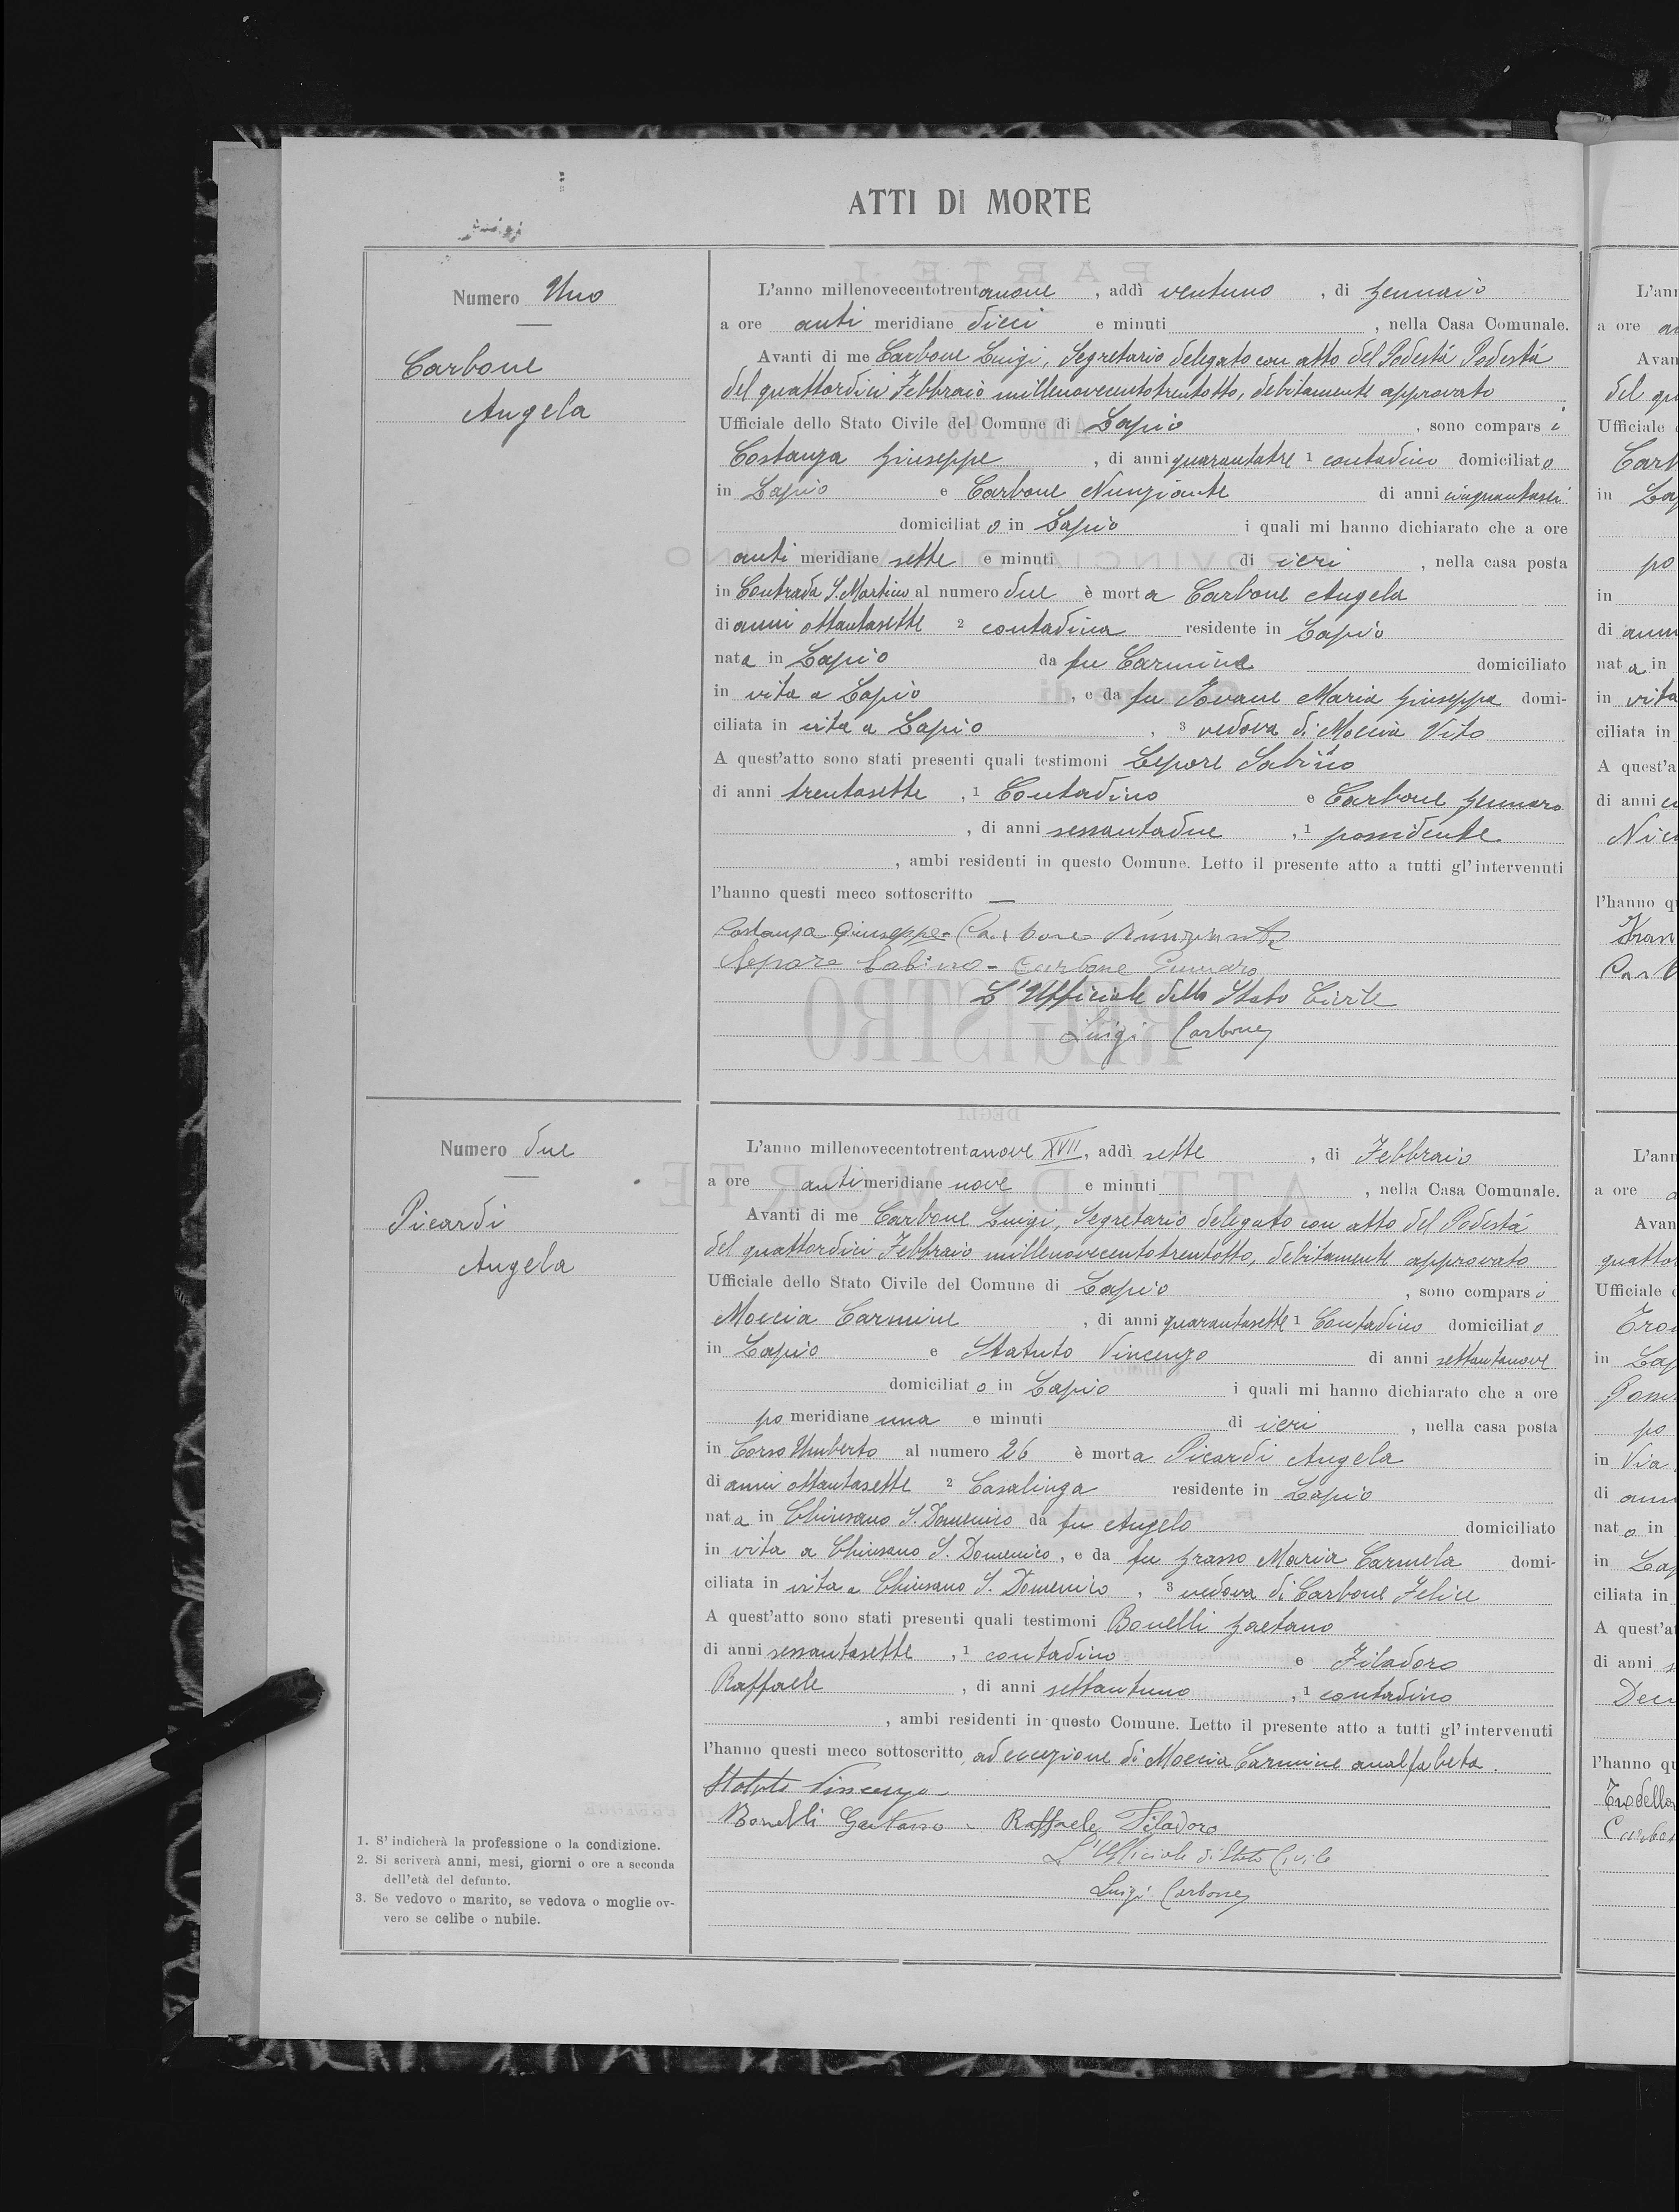 ATTI DI MORTE
Numero Uno
Carbone
Angela
L'anno millenovecentotrentanove, addì ventuno, di Gennaio
a ore anti meridiane dieci e minuti , nella Casa Comunale.
Avanti di me Carbone Luigi, Segretario delegato con atto del Podestà Podestà
del quattordici Febbraio millenovecentotrentotto, debitamente approvato
Ufficiale dello Stato Civile del Comune di Lapio , sono comparsi
Costanza Giuseppe , di anni quarantatre 1 contadino domiciliato
in Lapio e Carbone Nunziante di anni cinquantasei
domiciliato in Lapio i quali mi hanno dichiarato che a ore
anti meridiane sette e minuti di ieri , nella casa posta
in Contrada S. Martino al numero due è morta Carbone Angela
di anni ottantasette 2 contadina residente in Lapio
nata in Lapio da fu Carmine domiciliato
in vita a Lapio , e da fu Iovane Maria Giuseppa domi-
ciliata in vita a Lapio , 3 vedova di Moccia Vito
A quest'atto sono stati presenti quali testimoni Lepore Sabino
di anni trentasette , 1 Contadino e Carbone Gennaro
, di anni sessantadue , 1 possidente
, ambi residenti in questo Comune. Letto il presente atto a tutti gl'intervenuti
l'hanno questi meco sottoscritto —
Costanza Giuseppe - Carbone Nunziante
Lepore Sabino - Carbone Gennaro
L'Ufficiale dello Stato Civile
Luigi Carbone
Numero due
Picardi
Angela
L'anno millenovecentotrentanove XVII, addì sette , di Febbraio
a ore antimeridiane nove e minuti , nella Casa Comunale.
Avanti di me Carbone Luigi, Segretario delegato con atto del Podestà
del quattordici Febbraio millenovecentotrentotto, debitamente approvato
Ufficiale dello Stato Civile del Comune di Lapio , sono comparsi
Moccia Carmine , di anni quarantasette 1 Contadino domiciliato
in Lapio e Statuto Vincenzo di anni settantanove
domiciliato in Lapio i quali mi hanno dichiarato che a ore
po meridiane una e minuti di ieri , nella casa posta
in Corso Umberto al numero 26 è morta Picardi Angela
di anni ottantasette 2 Casalinga residente in Lapio
nata in Chiusano S. Domenico da fu Angelo domiciliato
in vita a Chiusano S. Domenico , e da fu Grasso Maria Carmela domi-
ciliata in vita a Chiusano S. Domenico , 3 vedova di Carbone Felice
A quest'atto sono stati presenti quali testimoni Bonelli Gaetano
di anni sessantasette , 1 contadino e Filadoro
Raffaele , di anni settantuno , 1 contadino
, ambi residenti in questo Comune. Letto il presente atto a tutti gl'intervenuti
l'hanno questi meco sottoscritto, ad eccezione di Moccia Carmine analfabeta.
Statuto Vincenzo
Bonelli Gaetano - Raffaele Filadoro
L'Ufficiale di Stato Civile
Luigi Carbone
1. S'indicherà la professione o la condizione.
2. Si scriverà anni, mesi, giorni o ore a seconda
dell'età del defunto.
3. Se vedovo o marito, se vedova o moglie ov-
vero se celibe o nubile.